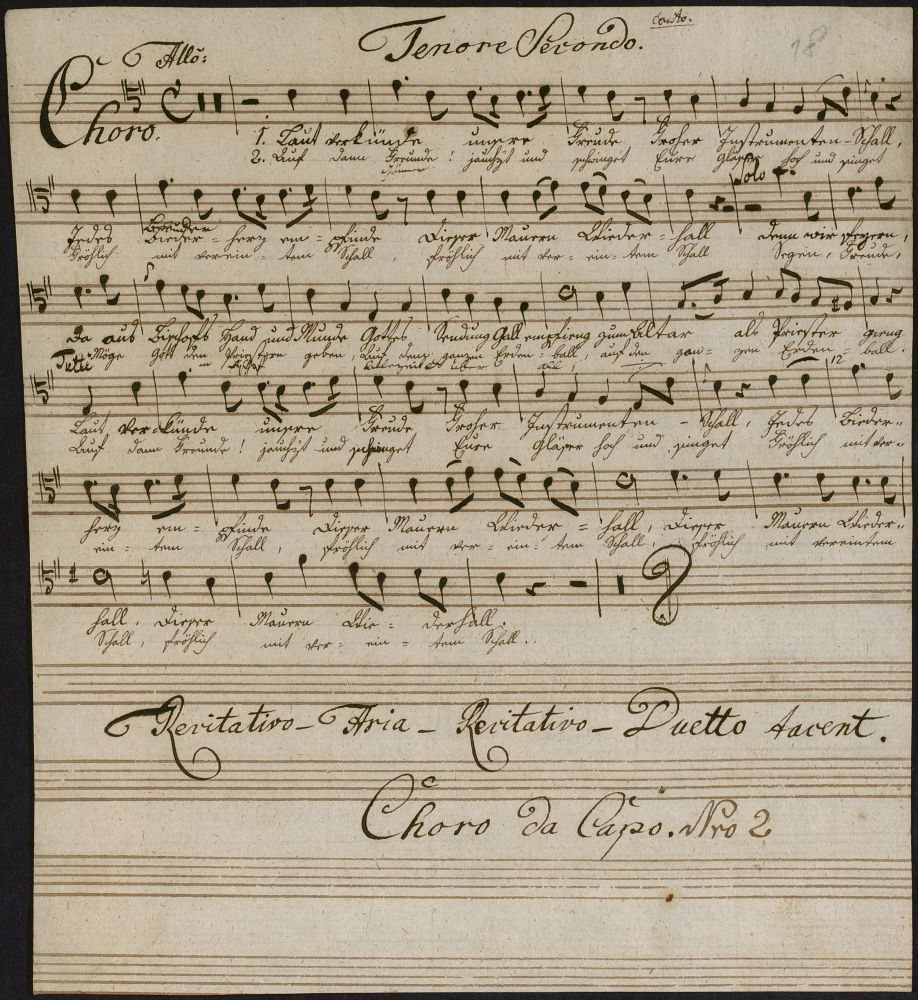 Canto.
Tenore Secondo.
18
Allo:
Choro.
1. Laut verkünde unsre Freude Froher Instrumenten-Schall,
2. Auf dann Freunde! jauchzt und schwinget Eure Gläser hoch und singet
Gönner
Solo
Bruder
Jedes Bieder-herz em-pfinde Dieser Mauern Wieder-hall denn wir feyern,
Fröhlich mit verein-tem Schall, fröhlich mit ver-ein-tem Schall Segen, Freude,
da aus Bischofs Hand und Munde Gottes Sendung Gall empfieng zum Altar als Priester gieng
Möge Gott dem Priestern geben, Auf dem ganzen Erden-ball, auf den gan-zen Erden-ball.
Tutti
12
Laut ver-künde unsere Freude Froher Instrumenten-Schall, Jedes Bieder-
Auf dann Freunde! jauchzt und schwinget Eure Gläser hoch und singet Fröhlich mit ver-
herz em-pfinde Dieser Mauern Wieder-hall, Dieser Mauern Wieder-
ein-tem Schall, fröhlich mit ver-ein-tem Schall, fröhlich mit vereintem
hall. Dieser Mauern Wie-derhall.
Schall, fröhlich mit ver-ein-tem Schall.
Recitativo - Aria - Recitativo - Duetto tacent.
Choro da Capo. Nro 2